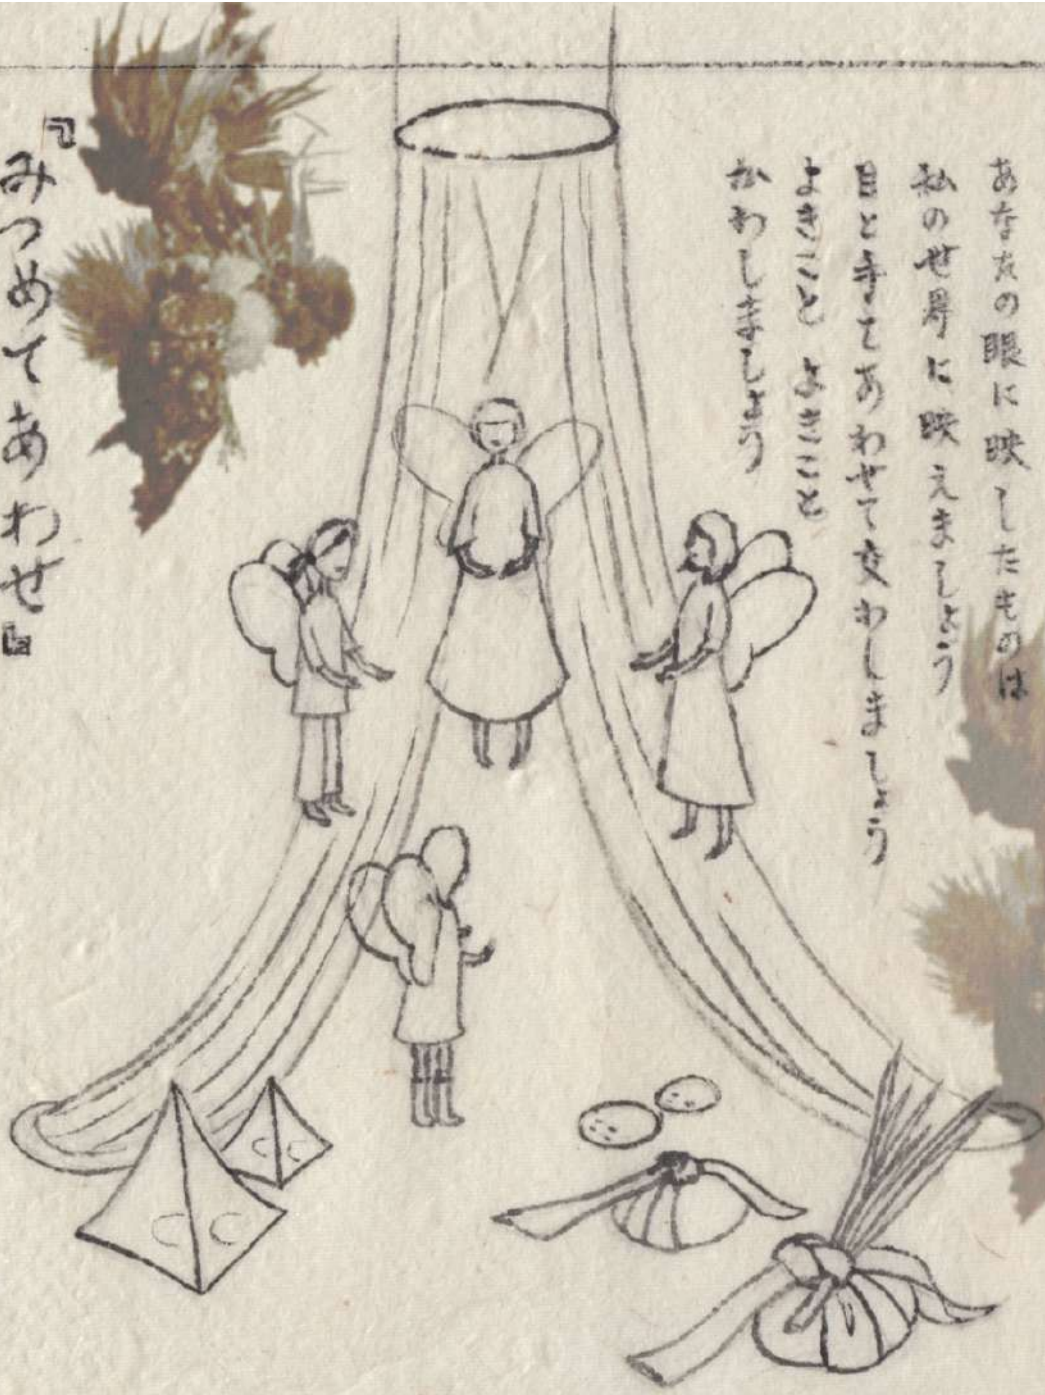 あなたの眼に映したものは
私の世界に映えましょう
目と手てあわせて交わしましょう
よきこと よきこと
かわしましょう
『みつめてあわせ』